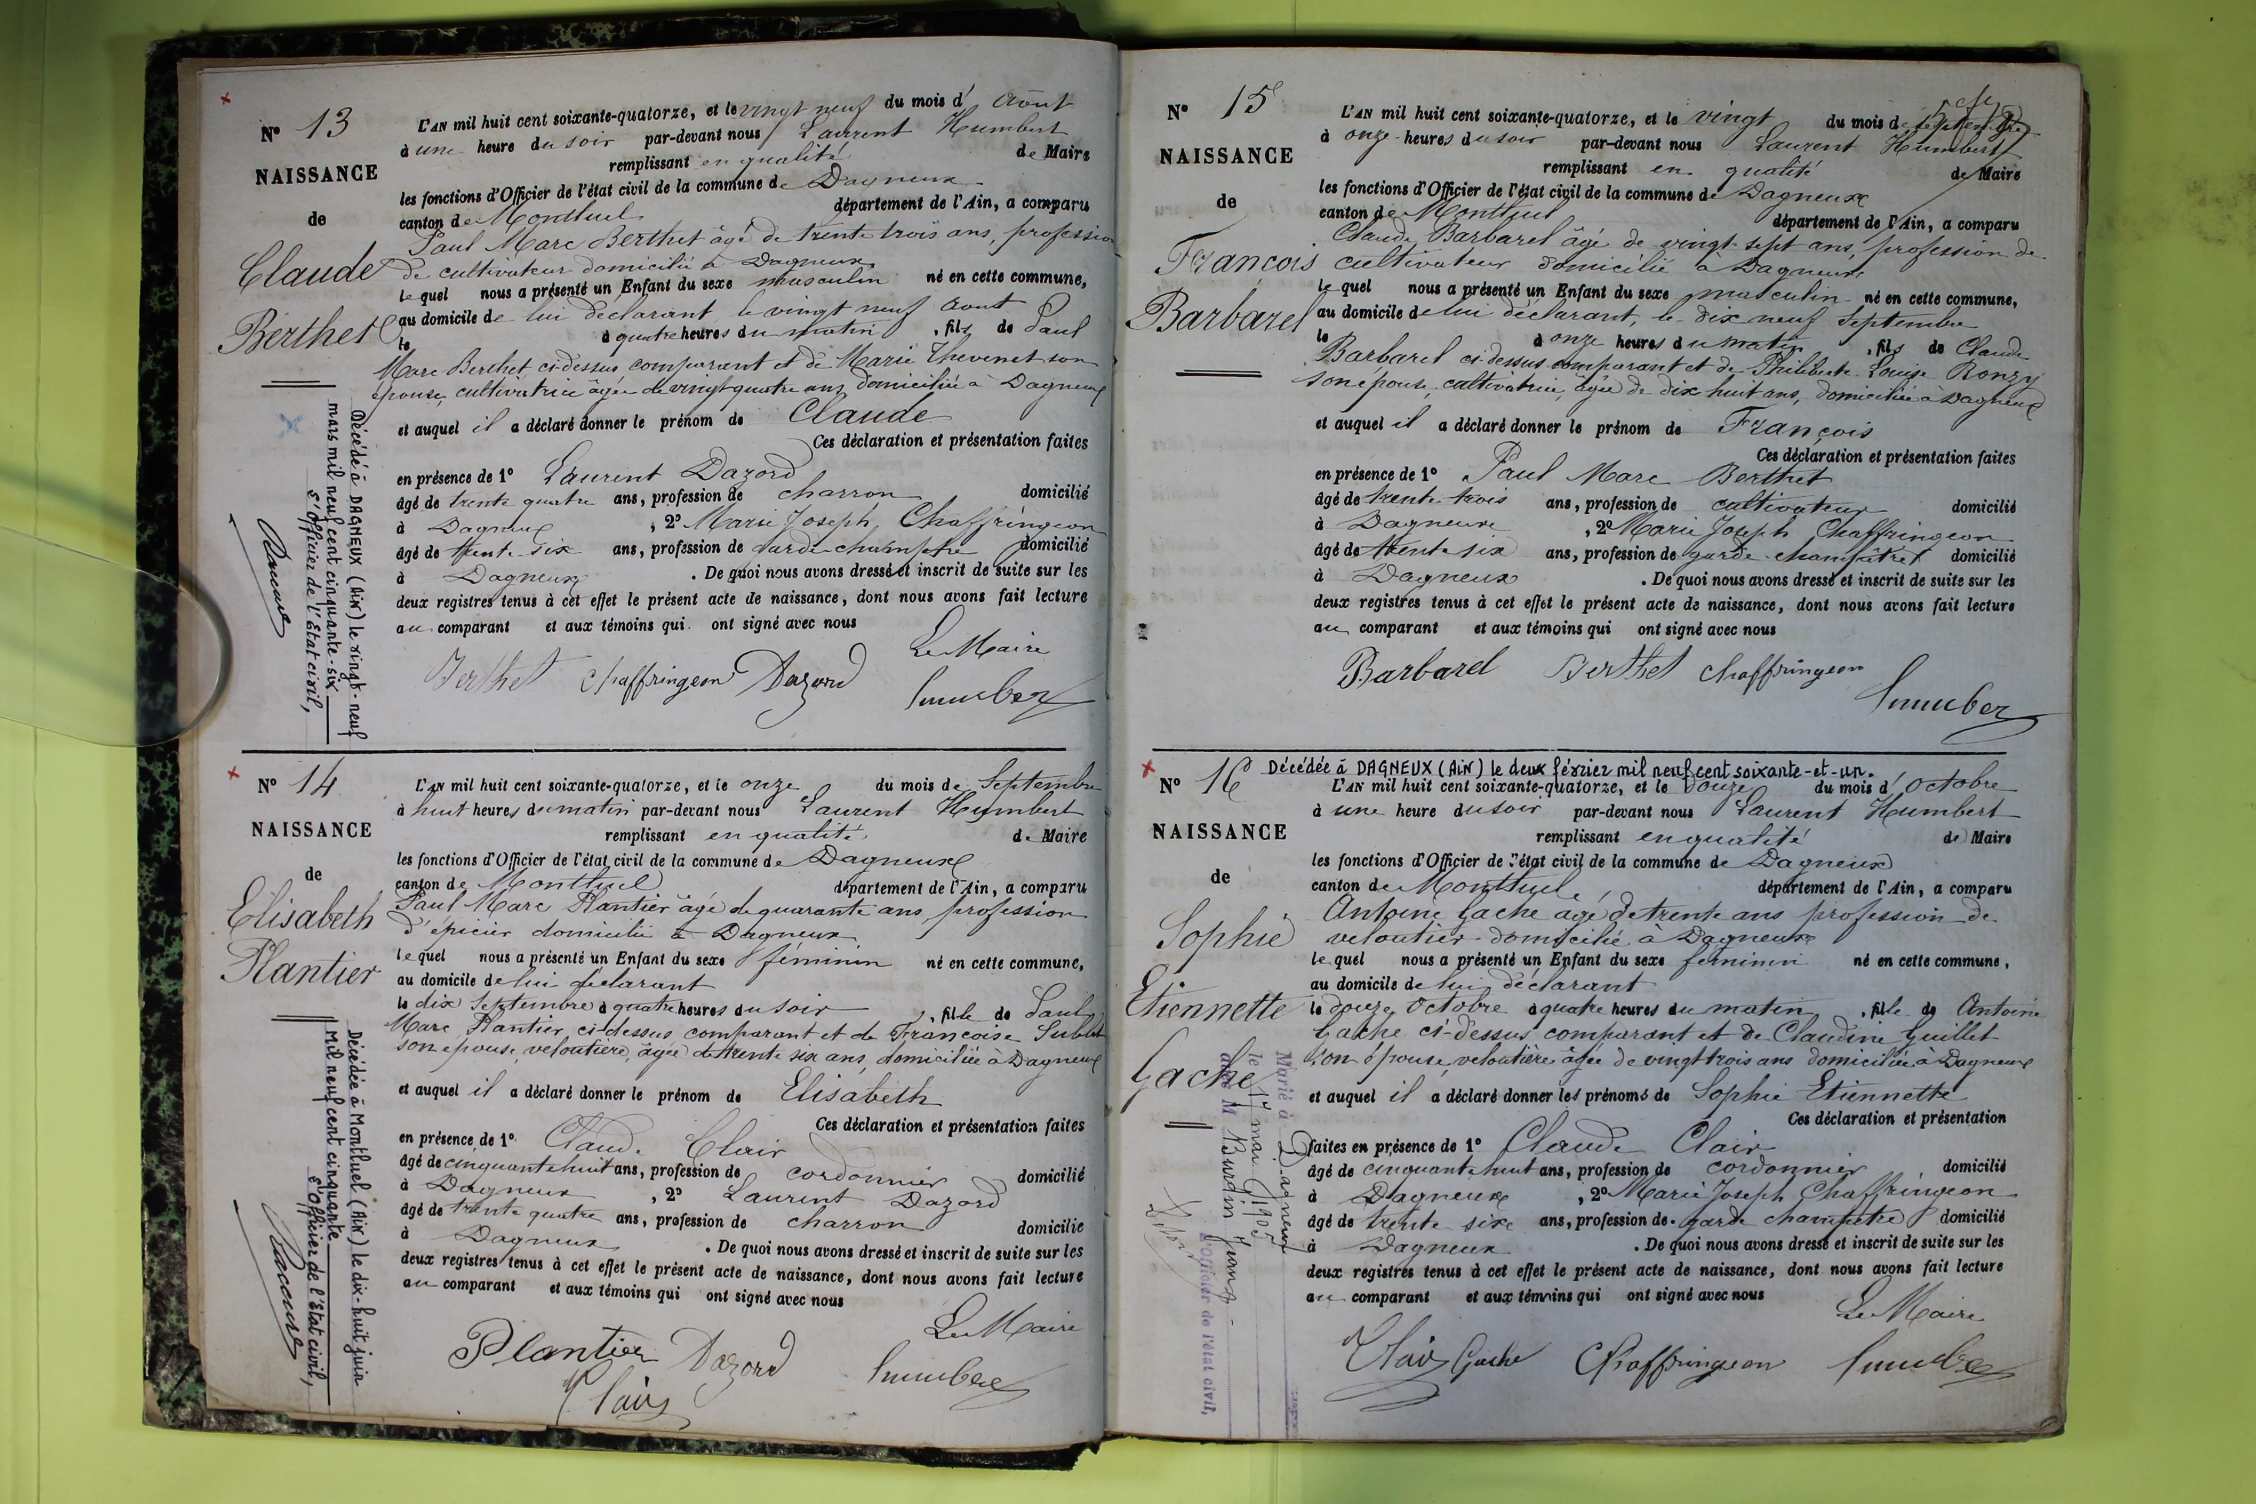 N° 13
NAISSANCE
de
Claude
Berthet
L'AN mil huit cent soixante-quatorze, et le vingt neuf du mois d' Août
à une heure du soir par-devant nous Laurent Humbert
remplissant en qualité de Maire
les fonctions d'Officier de l'état civil de la commune de Dagneux
canton de Montluel département de l'Ain, a comparu
Paul Marc Berthet âgé de trente trois ans, profession
de cultivateur domicilié à Dagneux
lequel nous a présenté un Enfant du sexe masculin né en cette commune,
au domicile de lui déclarant le vingt neuf Août
le à quatre heures du matin, fils de Paul
Marc Berthet ci-dessus comparant et de Marie Thevenet son
épouse, cultivatrice âgée de vingt-quatre ans domiciliée à Dagneux
et auquel il a déclaré donner le prénom de Claude
Ces déclaration et présentation faites
en présence de 1° Laurent Dazord
âgé de trente quatre ans, profession de charron domicilié
à Dagneux, 2° Marie Joseph Chaffringeon
âgé de trente six ans, profession de garde-champêtre domicilié
à Dagneux. De quoi nous avons dressé et inscrit de suite sur les
deux registres tenus à cet effet le présent acte de naissance, dont nous avons fait lecture
au comparant et aux témoins qui ont signé avec nous
Le Maire
Berthet Chaffringeon Dazord Humbert
Décédé à DAGNEUX (Ain) le vingt-neuf
mars mil neuf cent cinquante-six
L'Officier de l'Etat civil,
N° 14
NAISSANCE
de
Elisabeth
Plantier
L'AN mil huit cent soixante-quatorze, et le onze du mois de Septembre
à huit heures du matin par-devant nous Laurent Humbert
remplissant en qualité de Maire
les fonctions d'Officier de l'état civil de la commune de Dagneux
canton de Montluel département de l'Ain, a comparu
Paul Marc Plantier âgé de quarante ans, profession
d'épicier domicilié à Dagneux
lequel nous a présenté un Enfant du sexe féminin né en cette commune,
au domicile de lui déclarant
le dix Septembre à quatre heures du soir, fille de Paul
Marc Plantier, ci-dessus comparant et de Françoise Sublet
son épouse, veloutière, âgée de trente six ans, domiciliée à Dagneux
et auquel il a déclaré donner le prénom de Elisabeth
Ces déclaration et présentation faites
en présence de 1° Claude Clair
âgé de cinquante huit ans, profession de cordonnier domicilié
à Dagneux, 2° Laurent Dazord
âgé de trente quatre ans, profession de charron domicilié
à Dagneux. De quoi nous avons dressé et inscrit de suite sur les
deux registres tenus à cet effet le présent acte de naissance, dont nous avons fait lecture
au comparant et aux témoins qui ont signé avec nous
Le Maire
Plantier Dazord Humbert
Clair
Décédée à Montluel (Ain) le dix-huit juin
Mil neuf cent cinquante
L'Officier de l'Etat civil,
N° 15
NAISSANCE
de
François
Barbarel
L'AN mil huit cent soixante-quatorze, et le vingt du mois de Septembre
à onze heures du soir par-devant nous Laurent Humbert
remplissant en qualité de Maire
les fonctions d'Officier de l'état civil de la commune de Dagneux
canton de Montluel département de l'Ain, a comparu
Claude Barbarel âgé de vingt-sept ans, profession de
cultivateur domicilié à Dagneux
lequel nous a présenté un Enfant du sexe masculin né en cette commune,
au domicile de lui déclarant, le dix neuf Septembre
le à onze heures du matin, fils de Claude
Barbarel ci-dessus comparant et de Philiberte Louise Ronzy
son épouse, cultivatrice, âgée de dix huit ans, domiciliée à Dagneux
et auquel il a déclaré donner le prénom de François
Ces déclaration et présentation faites
en présence de 1° Paul Marc Berthet
âgé de trente trois ans, profession de cultivateur domicilié
à Dagneux, 2° Marie Joseph Chaffringeon
âgé de trente six ans, profession de garde-champêtre domicilié
à Dagneux. De quoi nous avons dressé et inscrit de suite sur les
deux registres tenus à cet effet le présent acte de naissance, dont nous avons fait lecture
au comparant et aux témoins qui ont signé avec nous
Barbarel Berthet Chaffringeon
Humbert
N° 16
NAISSANCE
de
Sophie
Etiennette
Gache
Décédée à DAGNEUX (Ain) le deux février mil neuf cent soixante-et-un.
L'AN mil huit cent soixante-quatorze, et le douze du mois d' Octobre
à une heure du soir par-devant nous Laurent Humbert
remplissant en qualité de Maire
les fonctions d'Officier de l'état civil de la commune de Dagneux
canton de Montluel département de l'Ain, a comparu
Antoine Gache âgé de trente ans profession de
veloutier domicilié à Dagneux
lequel nous a présenté un Enfant du sexe féminin né en cette commune,
au domicile de lui déclarant
le douze Octobre à quatre heures du matin, fille de Antoine
Gache ci-dessus comparant et de Claudine Guillet
son épouse, veloutière âgée de vingt trois ans domiciliée à Dagneux
et auquel il a déclaré donner les prénoms de Sophie Etiennette
Ces déclaration et présentation
faites en présence de 1° Claude Clair
âgé de cinquante huit ans, profession de cordonnier domicilié
à Dagneux, 2° Marie Joseph Chaffringeon
âgé de trente six ans, profession de garde champêtre domicilié
à Dagneux. De quoi nous avons dressé et inscrit de suite sur les
deux registres tenus à cet effet le présent acte de naissance, dont nous avons fait lecture
au comparant et aux témoins qui ont signé avec nous
Le Maire
Clair Gache Chaffringeon Humbert
Marié à Dagneux
le 17 mai 1905
avec M Burdin
L'officier de l'état civil,